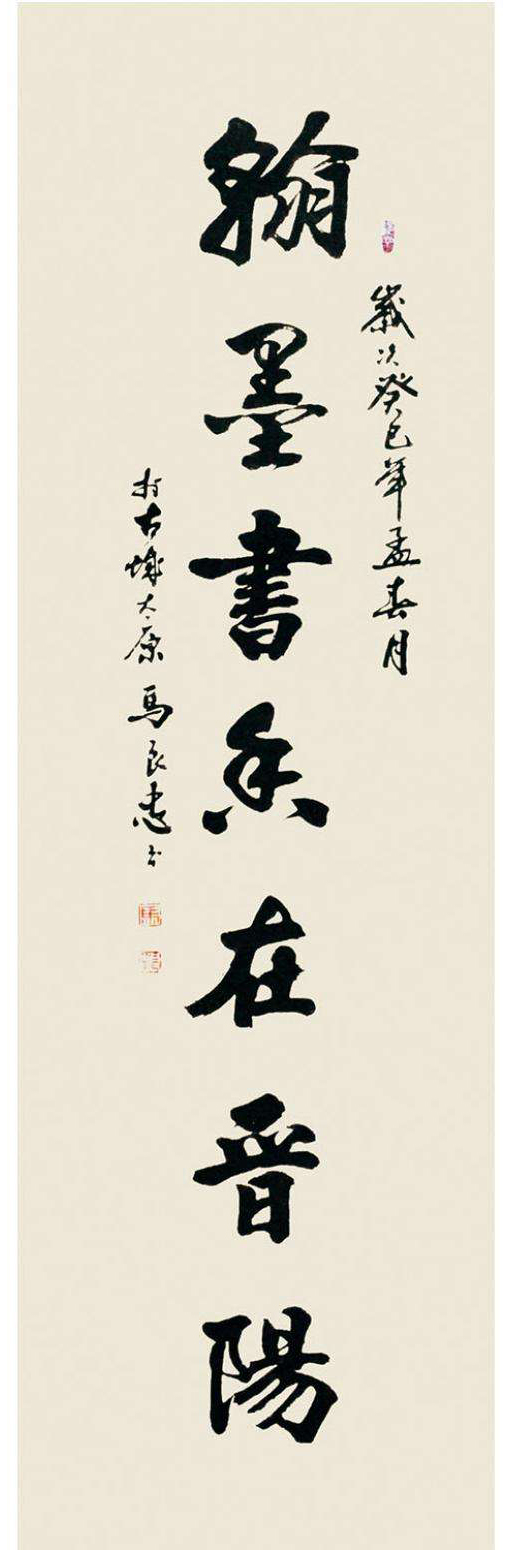 歲次癸巳年孟春月
翰墨書香在晉陽
於古城太原 馬良忠書